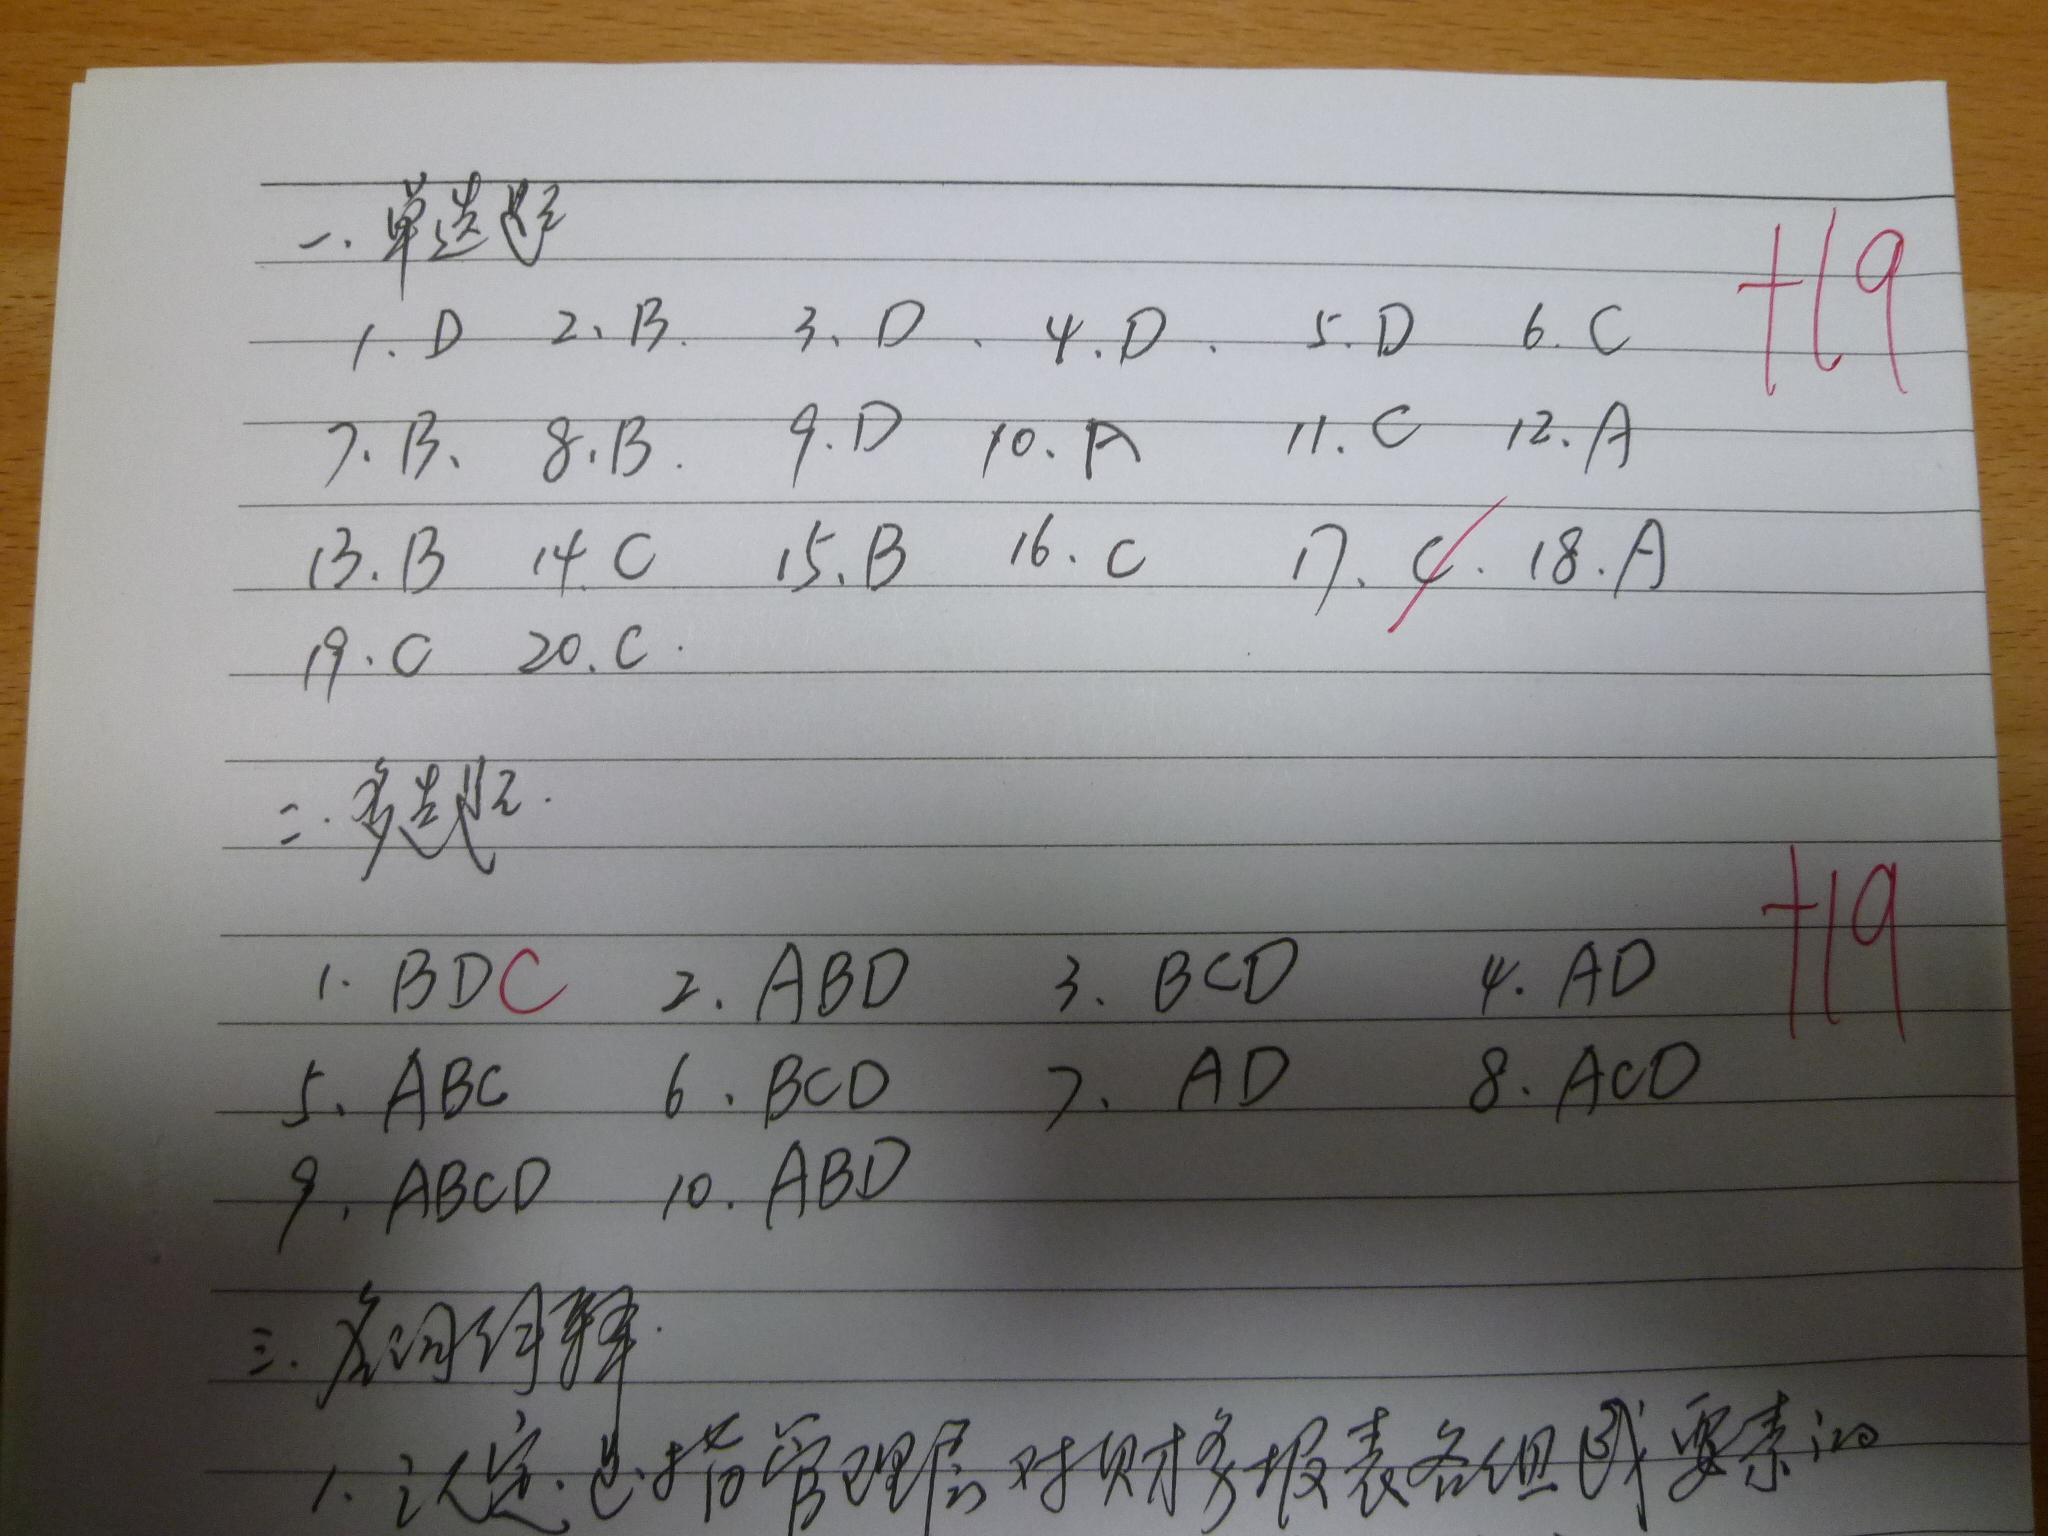 一.单选题
+19
1.D 2.B. 3.D. 4.D. 5.D 6.C
7.B. 8.B. 9.D 10.A 11.C 12.A
13.B 14.C 15.B 16.C 17.C. 18.A
19.C 20.C.
二.多选题.
+19
1.BDC 2.ABD 3.BCD 4.AD
5.ABC 6.BCD 7.AD 8.ACD
9.ABCD 10.ABD
三.名词解释.
1.认定.是指管理层对财务报表各组成要素的